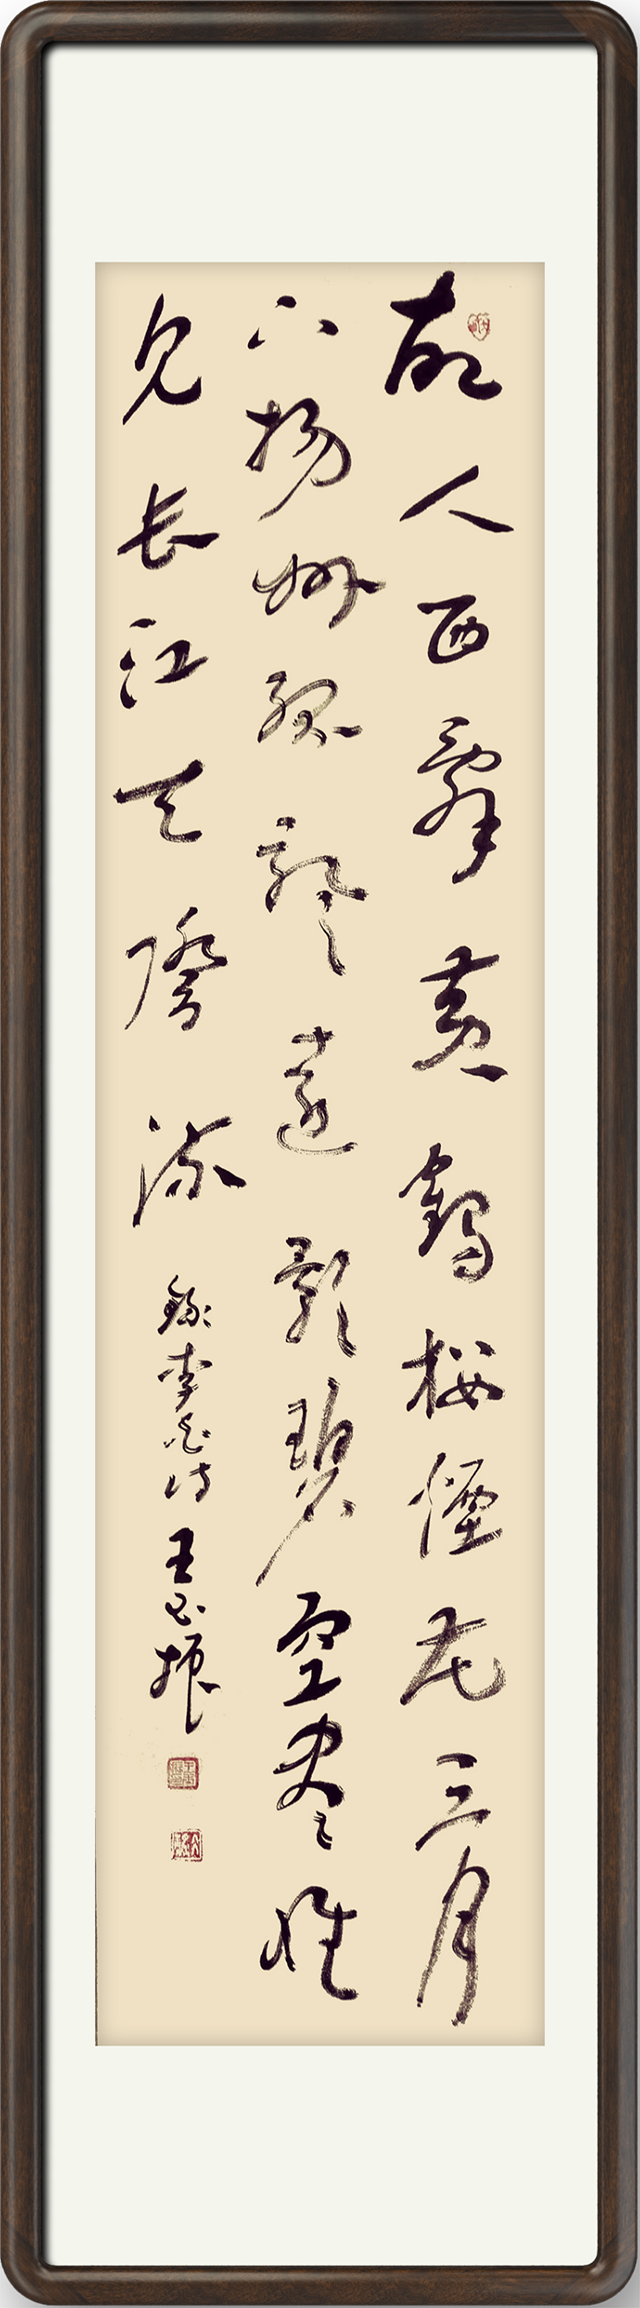 故人西辭黄鶴楼煙花三月
下揚州孤帆遠影碧空盡惟
見長江天際流 録李白詩 王振